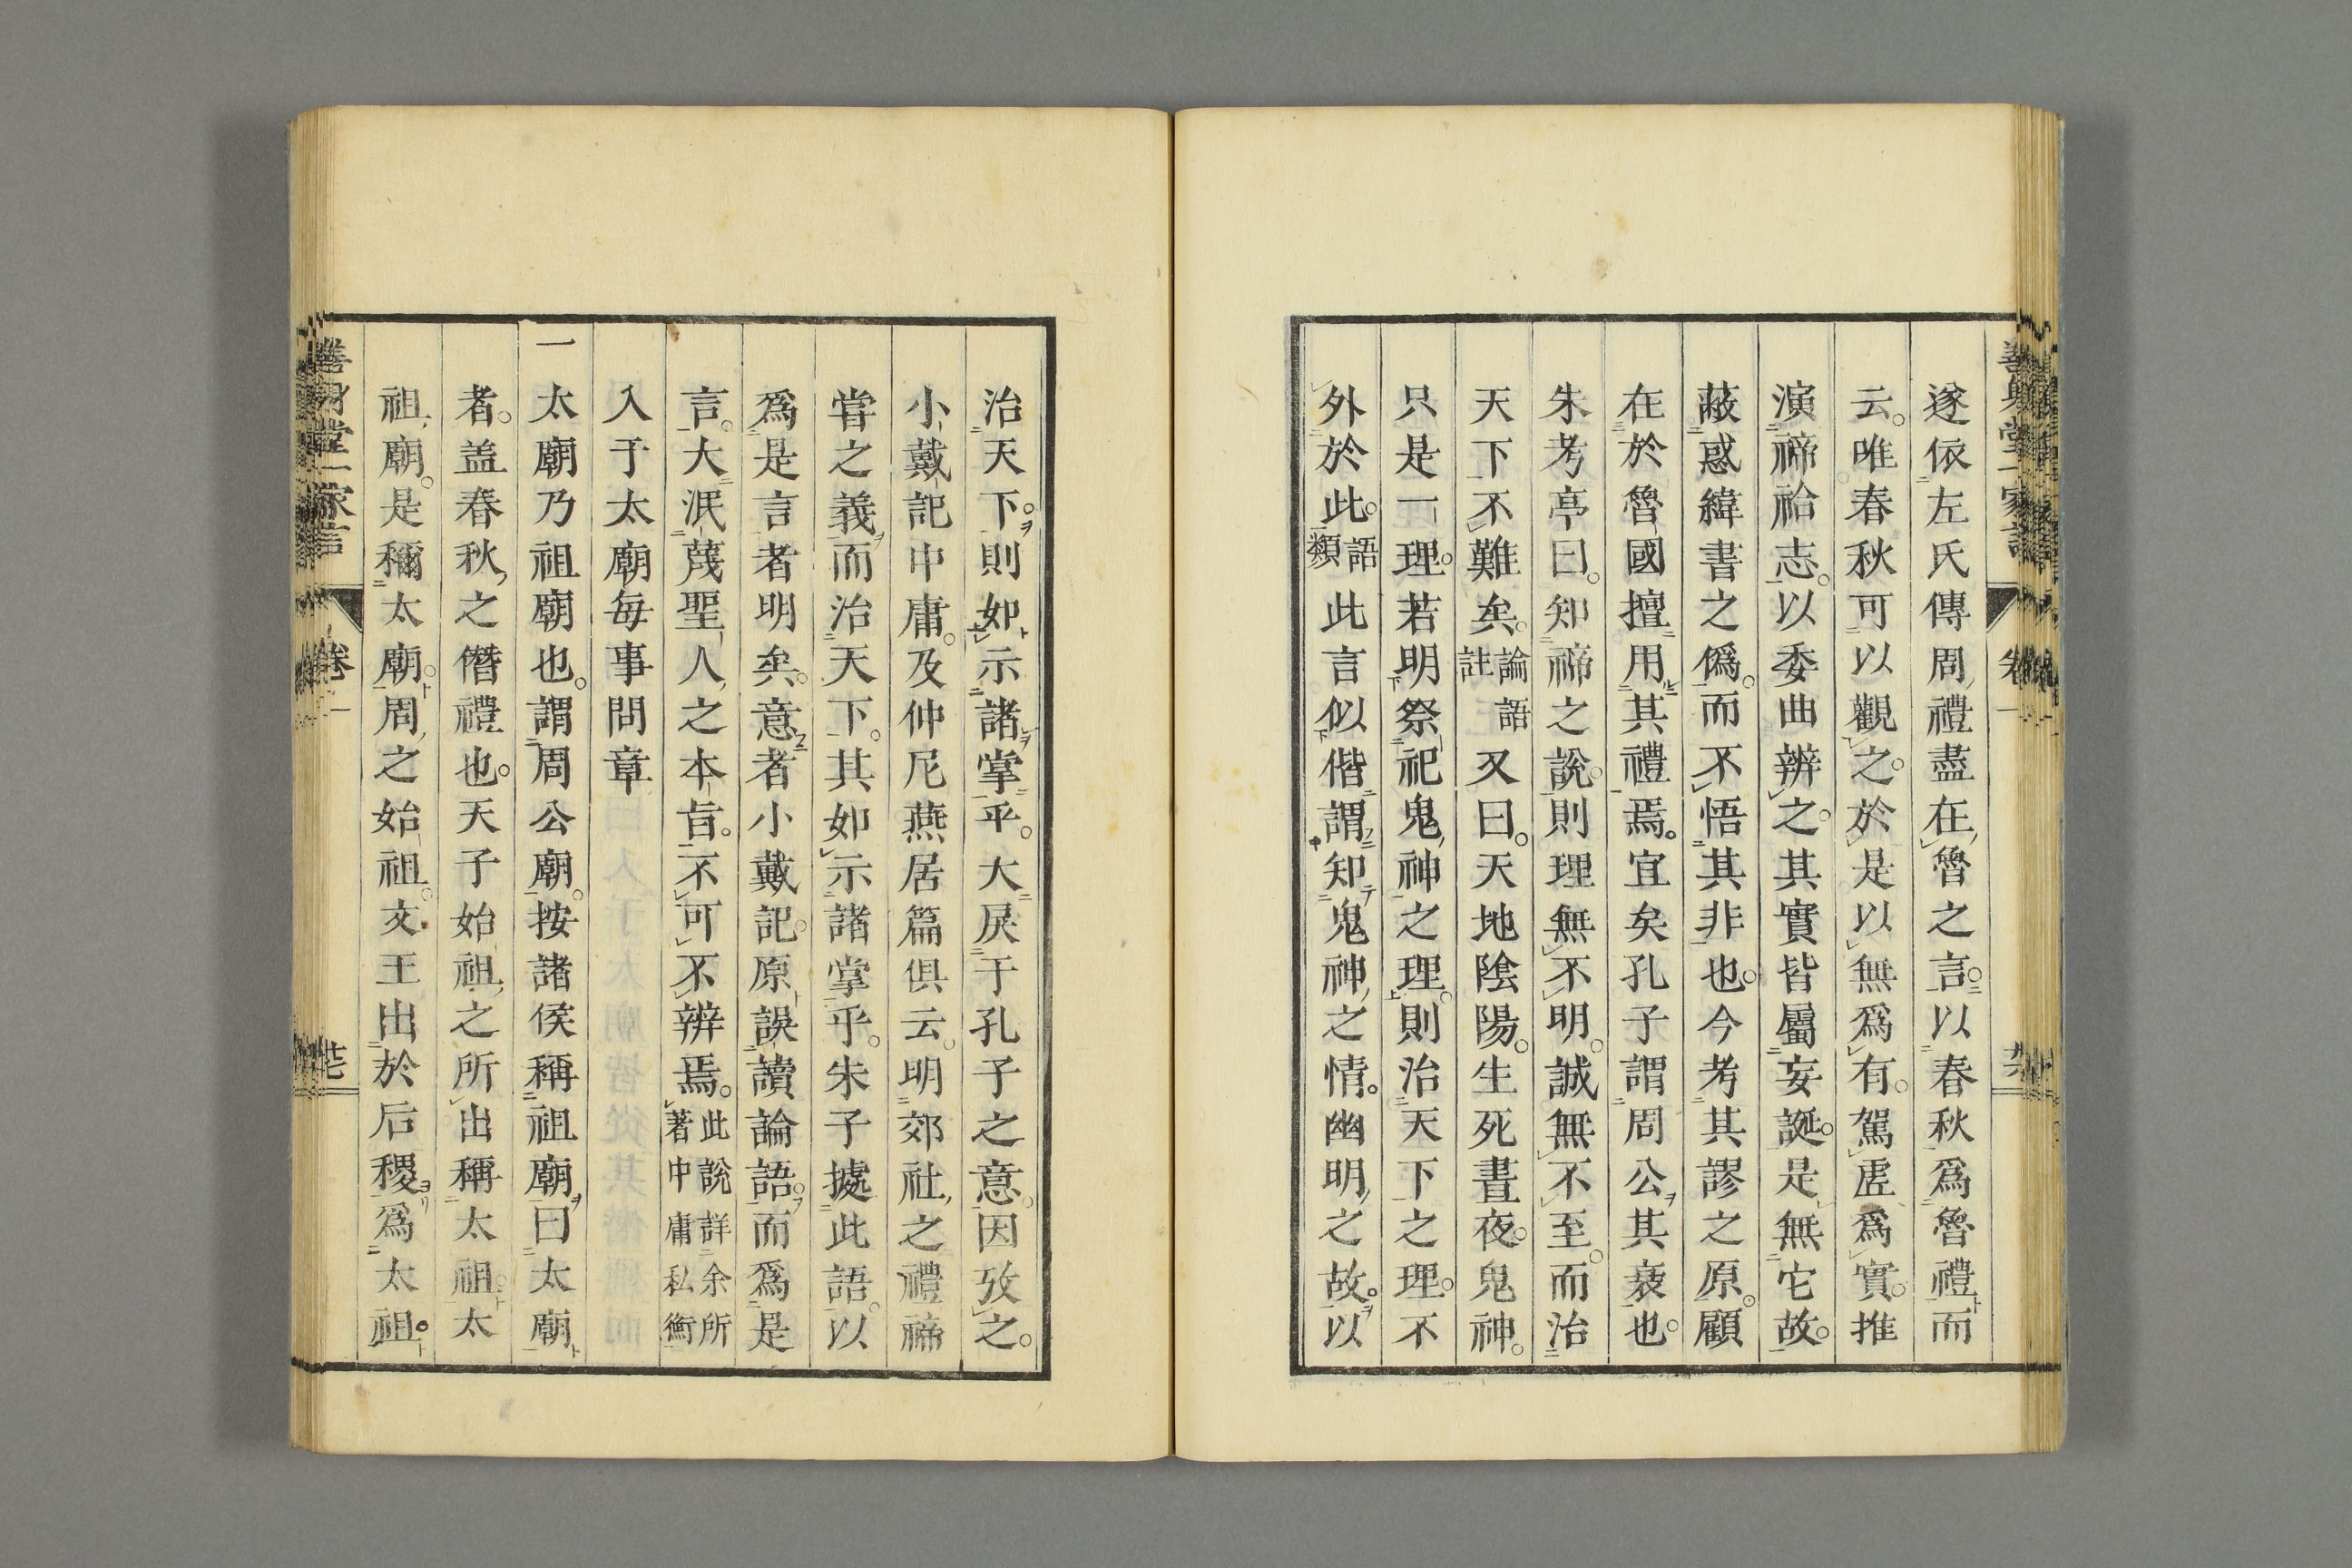 遂依左氏傳周禮盡在魯之言。以春秋爲魯禮而
云。唯春秋可以觀之。於是以無爲有。駕虛爲實。推
演禘祫志。以委曲辨之。其實皆屬妄誕。是無它故。
蔽惑緯書之僞。而不悟其非也。今考其謬之原。顧
在於魯國擅用其禮焉。宜矣孔子謂周公其衰也。
朱考亭曰。知禘之說。則理無不明。誠無不至。而治
天下不難矣。論語註又曰。天地陰陽。生死晝夜。鬼神。
只是一理。若明祭祀鬼神之理。則治天下之理。不
外於此。語類此言似偕謂知鬼神之情。幽明之故。以
治天下。則如示諸掌乎。大戾于孔子之意。因攷之。
小戴記中庸。及仲尼燕居篇俱云。明郊社之禮禘
甞之義。而治天下。其如示諸掌乎。朱子據此語。以
爲是言者明矣。意者小戴記。原誤讀論語。而爲是
言。大泯蔑聖人之本旨。不可不辨焉。此說詳余所著中庸私衡
入于太廟每事問章
一太廟乃祖廟也。謂周公廟。按諸侯稱祖廟曰太廟
者。蓋春秋之僭禮也。天子始祖之所出稱太祖。太
祖廟。是稱太廟。周之始祖。文王出於后稷爲太祖。
善身堂一家言
卷一